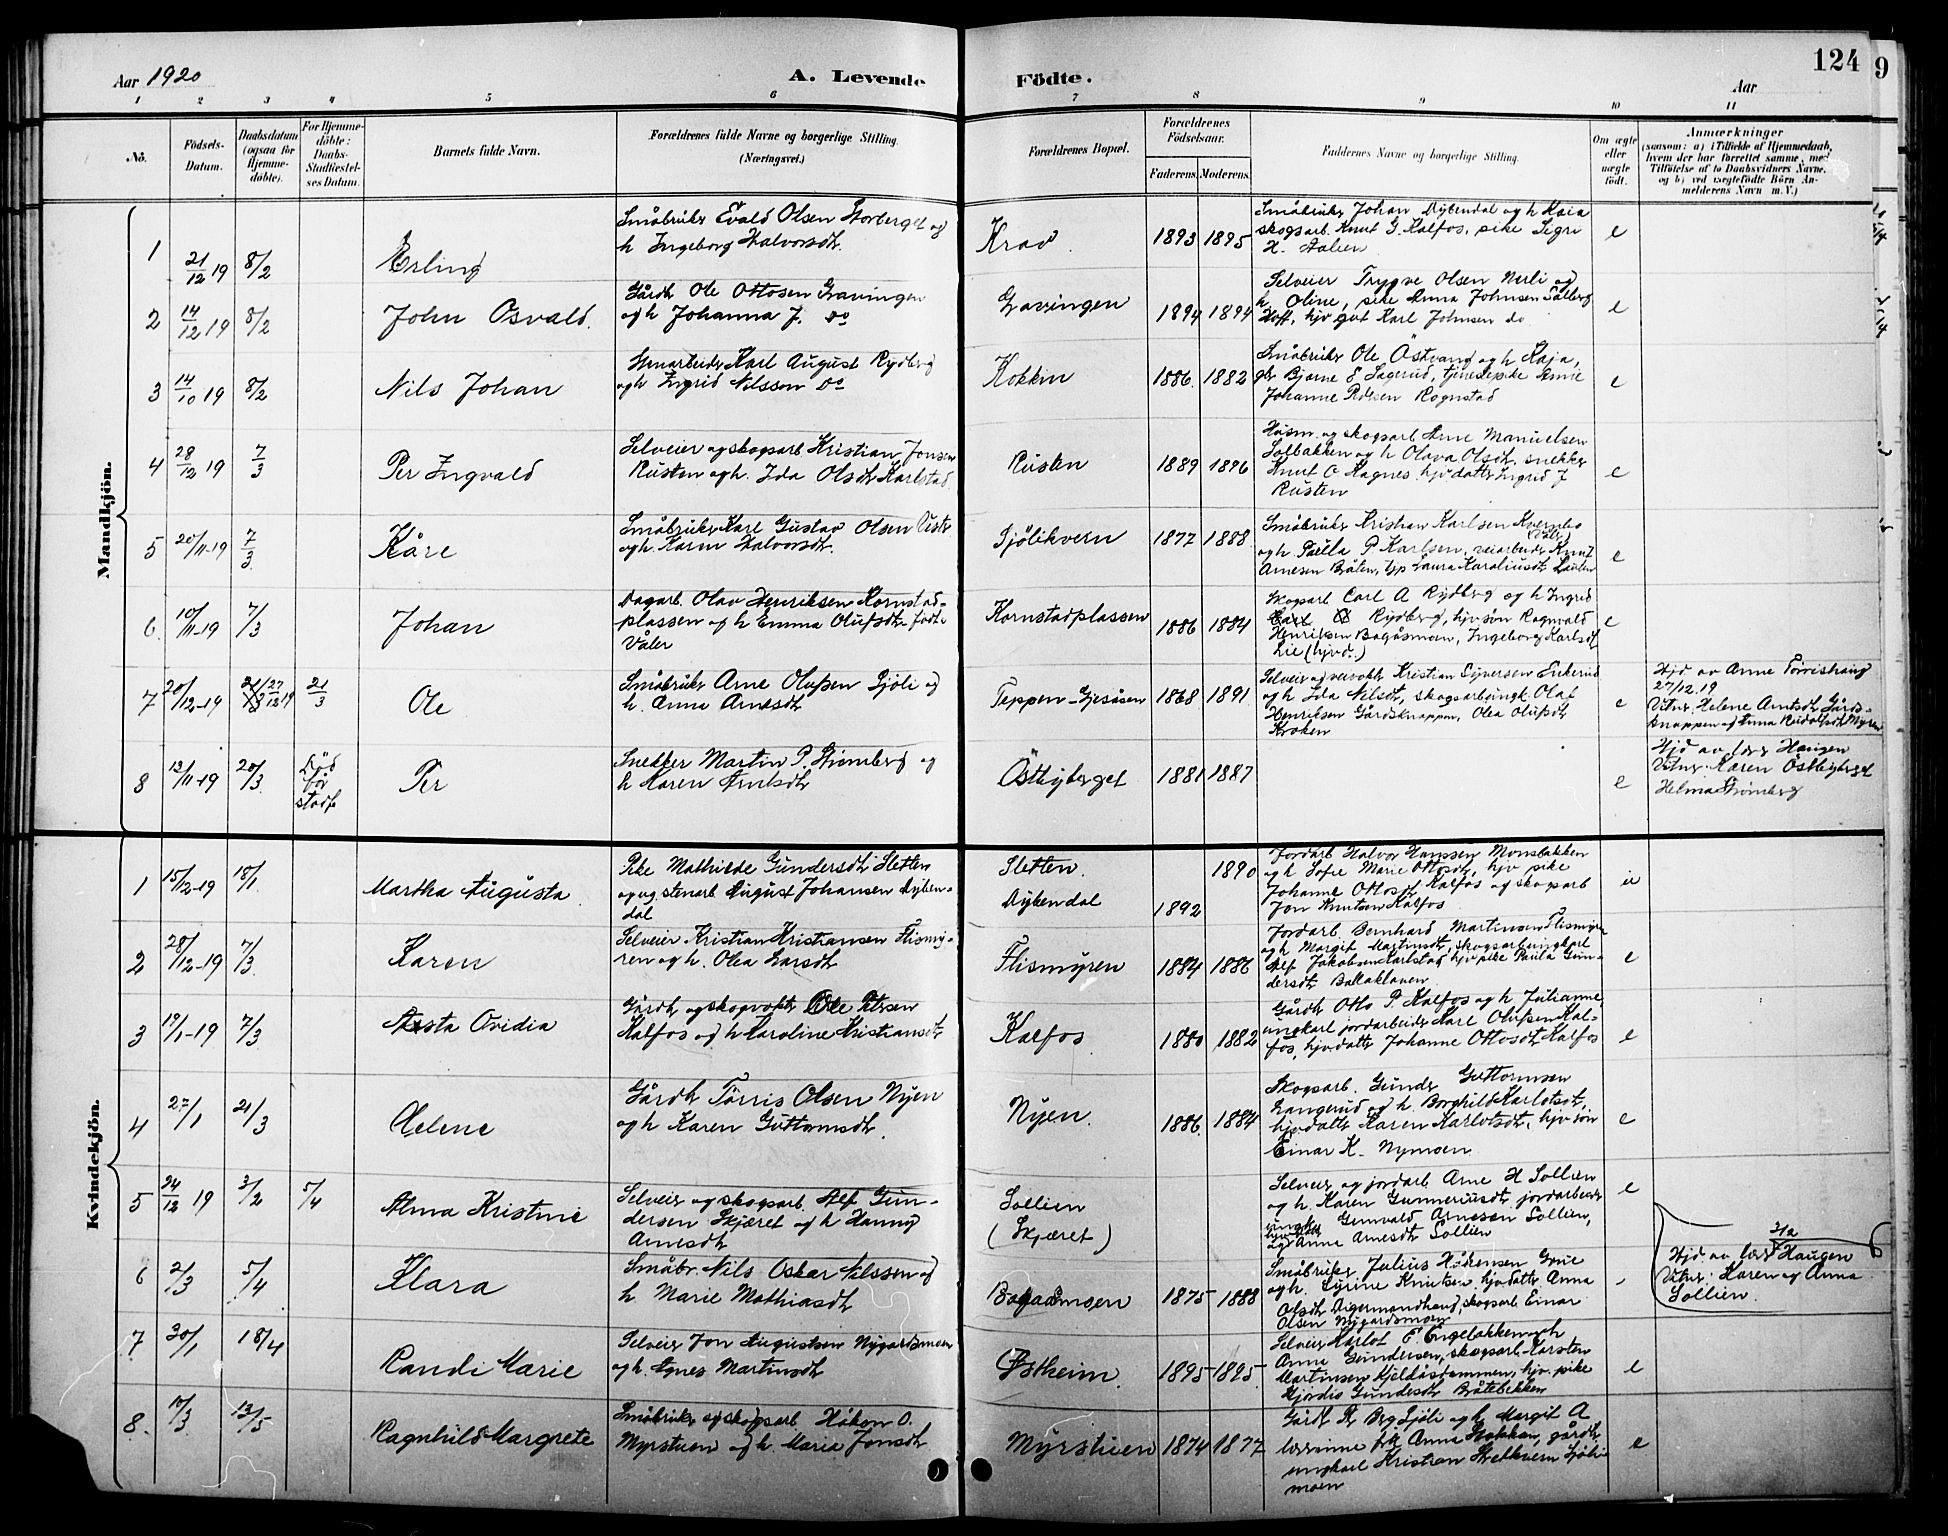 Aar 1920
A. Levende
Födte.
Aar
124
9
1 2 3 4 5 6 7 8 9 10 11
Nö.
Födsels-
Datum.
Daabsdatum
(ogsaa for
Hjemme-
döbte).
For Hjemme-
döbte:
Daabs-
Stadfæstel-
ses Datum.
Barnets fulde Navn.
Forældrenes fulde Navne og borgerlige Stilling.
(Næringsvei.)
Forældrenes Bopæl.
Forældrenes
Födselsaar.
Faderens. Moderens.
Faddernes Navne og borgerlige Stilling.
Om ægte
eller
uægte
födt.
Anmærkninger
(saasom: a) i Tilfælde af Hjemmedaab,
hvem der har forrettet samme, med
Tilföielse af to Daabsvidners Navne,
og b) ved uægtefödte Börn An-
melderens Navn m. V.)
Mandkjön.
1 21/12 19 8/2 Erling
Småbruker Evald Olsen Storberget og
h Ingeborg Halvorsdt.
Krav 1893 1895
Småbruker Johan Dybendal og h Kaia
skogsarb. Knut G. Kalfos, pike Sigri
H. Aalien
e
2 14/12 19 8/2 John Osvald.
Gårdb Ole Ottosen Gravingen
og h Johanna J. do
Gravingen 1894 1894
Selveier Trygve Olsen Nerli og
h. Oline, pike Anna Johnsen Solberg
Hoff, hjv gut Karl Johnsen do
e
3 14/10 19 8/2 Nils Johan
Karl August Rydberg
og h Ingrid Nilssen do
Kokkin 1886. 1882
Småbruker Ole Östvang og h Kaja,
gbr Bjarne E Sagerud, tjenestepike
Johanne Rognstad
e
4 28/12 19 7/3 Per Ingvald
Selveier og skogsarb Kristian Jonsen
Rusten og h. Ida Olsdt Karlstad
Rusten 1889 1896
Husm og skogsarb Arne Manuelsen
Solbakken og h Olava Olsdt, snekker
Knut O Hagnes hjv datter Ingrid J
Rusten
e
5 20/11-19 7/3 Kåre
Småbruker Karl Gustav Olsen
og h. Karen Halvorsdt.
Sjölikvern 1877 1888
Småbruker Kristian Karlsen Kvernbo
(Våler)
og h. P Karlsen, veiarbeider Knut
Arnesen Bråten, Laura
e
6 10/11-19 7/3 Johan
Dagarb. Olav Henriksen Kornstad-
plassen og h Emma Olufsdt födt i
Våler
Kornstadplassen 1886 1884
Skogsarb Carl A Rydberg og h Ingrid
Rydberg, hjv sön Ragnvald
Henriksen Bogåsmoen, Ingeborg Karlsdt
Lie (hjvd.)
e
7 20/12-19 27/12 19 21/3 Ole
Småbruker Arne Olufsen Sjöli og
h. Anna Arnesdt
Teppen-Gjesåsen 1868 1891
Selveier og veivokter Kristian Syversen
og h Ida Nilsdt, skogsarb ungk Olaf
Henriksen Gårdsknappen, Olea Olufsdt
Kroken
e
Hjd av Anne Törrishaug
27/12 19
Vitner, Helene Arntsdt Gårds-
knappen og Anna Rudolfsdt Myren
8 12/11-19 20/3 Död
för
stadf
Per
Snekker Martin P. Strömberg og
h Karen Arntsdt
Östbyberget 1881 1887
e
Hjd av lærer Haugen
Vitner: Karen Östbyberget
Helma Strömberg
Kvindekjön.
1 15/12-19 18/1. Martha Augusta.
Pike Mathilde Gundersdt Sletten
og ug. stenarb August Johansen Dyben-
dal
Sletten.
Dybendal
1892 1890
Jordarb Halvor Hanssen Monsbakken
og h Sofie Marie Ottosdt, hjv pike
Johanne Ottosdt Kalfos og skogsarb
Jon Knutsen Kalfos
u
2 28/12-19 7/3. Karen
Selveier Kristian Kristiansen Flismy-
ren og h. Olea Larsdt
Flismyren 1884 1886
Jordarb. Bernhard Martinsen Flismyren
og h. Margit Martinsdt, skogsarb ungkarl
Alf Jakobsen Karlstad hjv pike Paula Gun-
dersdt Bakkakleven
e
3 19/1-19 7/3. Asta Ovidia
Gårdb og skogvokter Ole Petersen
Kalfos og h Karoline Kristiansdt
Kalfos 1880 1882
Gårdb Otto P. Kalfos og h Julianne,
ungkarl jordarbeider Karl Olufsen Kal-
fos, hjv datter Johanne Ottosdt Kalfos
e
4 27/1 21/3 Helene
Gårdb Törris Olsen Nyen
og h Karen Guttormsdt.
Nyen. 1886. 1884
Skogsarb. Gunder Guttormsen
Langerud og h. Borghild Karlotsdt,
hjv datter Karen Karlotsdt, hjv sön
Einar K. Nymoen
e
5 24/12 19 3/2 5/4 Alma Kristine
Selveier og skogsarb Alf Gun-
dersen Skjæret og h Hanny
Arnesdt
Sollien
(Skjæret)
Selveier og jordarb Arne H Sollien
og h. Karen Gunneriusdt, jordarbeider
ungk. Gunvald Arnesen Sollien,
Anne Arnesdt Sollien
e
3/2
Hjd av lærer Haugen
Vitner: Karen og Anna
Sollien.
6 2/3 5/4 Klara
Småbr. Nils Oskar Nilssen og
h Marie Mathiasdt
Bogåsmoen 1875 1888
Småbruker Julius Grue
og h. Syrine Knutsen hjv datter Anna
Olsdt Digermandhaug, skogsarb Einar
Olsen Nygårdsmoen
7 30/1 18/4 Randi Marie
Selveier Jon Augustsen Nygårdsmoen
og h. Agnes Martinsdt
Östheim. 1895 1895.
Selveier Karlot E. Engebakken og h
Anna Gundersen, skogsarb. Karsten
Martinsen Kjeldåsdammen, hjv. pike
Hjördis Gundersdt Bråtebekken
e
8. 17/3. 13/5 Ragnhild Margrete
Småbruker og skogsarb Håkon O.
Myrstuen og h. Maria Jonsdt
Myrstuen 1874 1877
Gårdb Berg Sjöli og h Margit A
lærerinne frk Anna Stokken, gårdb
ungkarl Kristian Sjöli-
moen
e